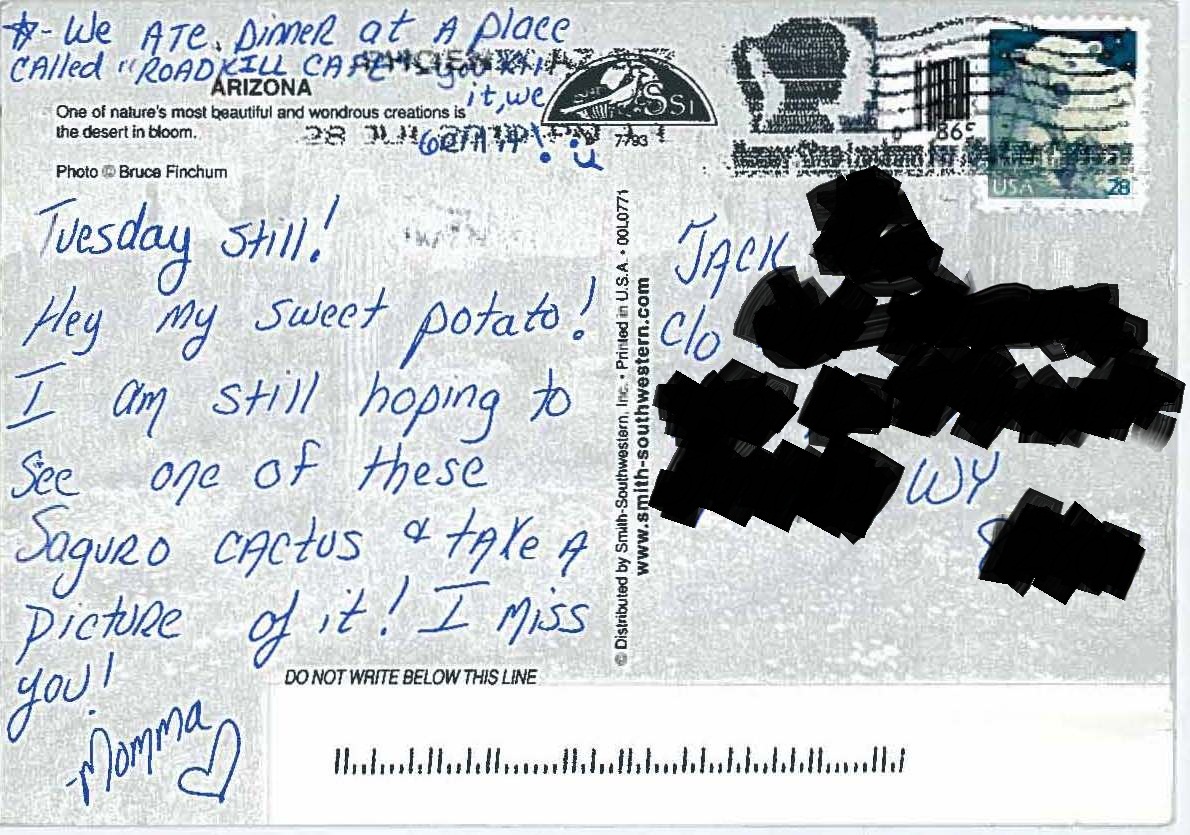 ☆- We ATE Dinner at A place
CAlled "ROADKILL CAFE" - you kill
it, we
grill it!
ARIZONA
One of nature's most beautiful and wondrous creations is
the desert in bloom.
28 JUL
7793
Photo © Bruce Finchum
SSI
865
USA 28
Tuesday still!
Hey my sweet potato!
I am still hoping to
See one of these
Saguro cactus & take A
picture of it! I miss
you!
-Momma
© Distributed by Smith-Southwestern, Inc. • Printed in U.S.A. • 00L0771
www.smith-southwestern.com
JACK
C/o
WY
8
DO NOT WRITE BELOW THIS LINE